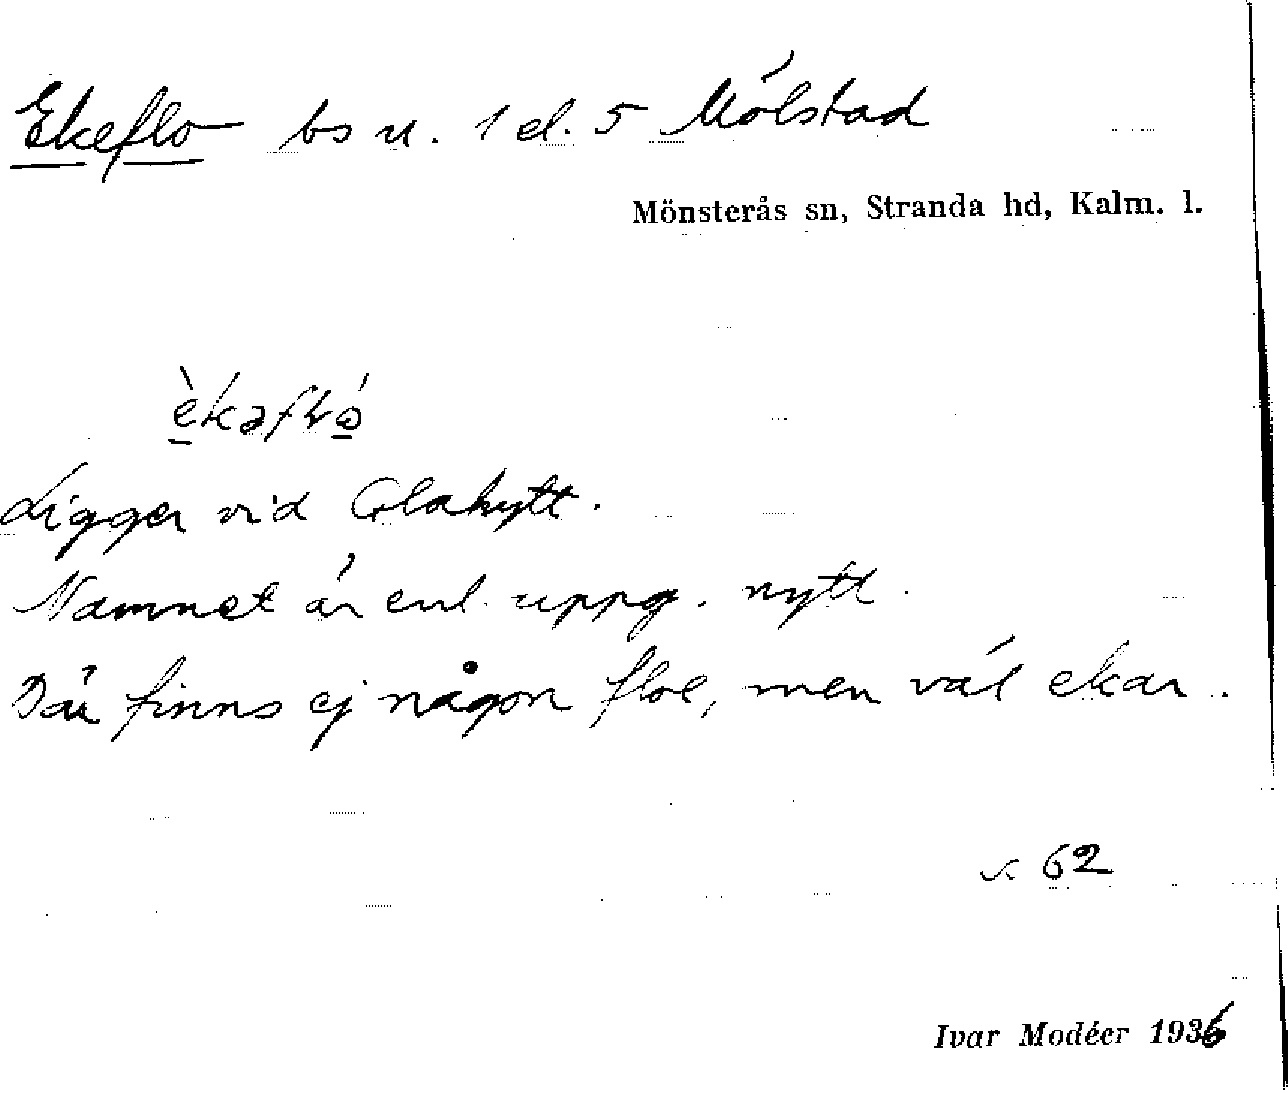 Ekeflo bs u. 1 el. 5 Mölstad
Mönsterås sn, Stranda hd, Kalm. l.
Ligger vid Glahytt.
Namnet är enl. uppg. nytt.
Där finns ej någon floe, men väl ekar.
s. 62
Ivar Modéer 1936